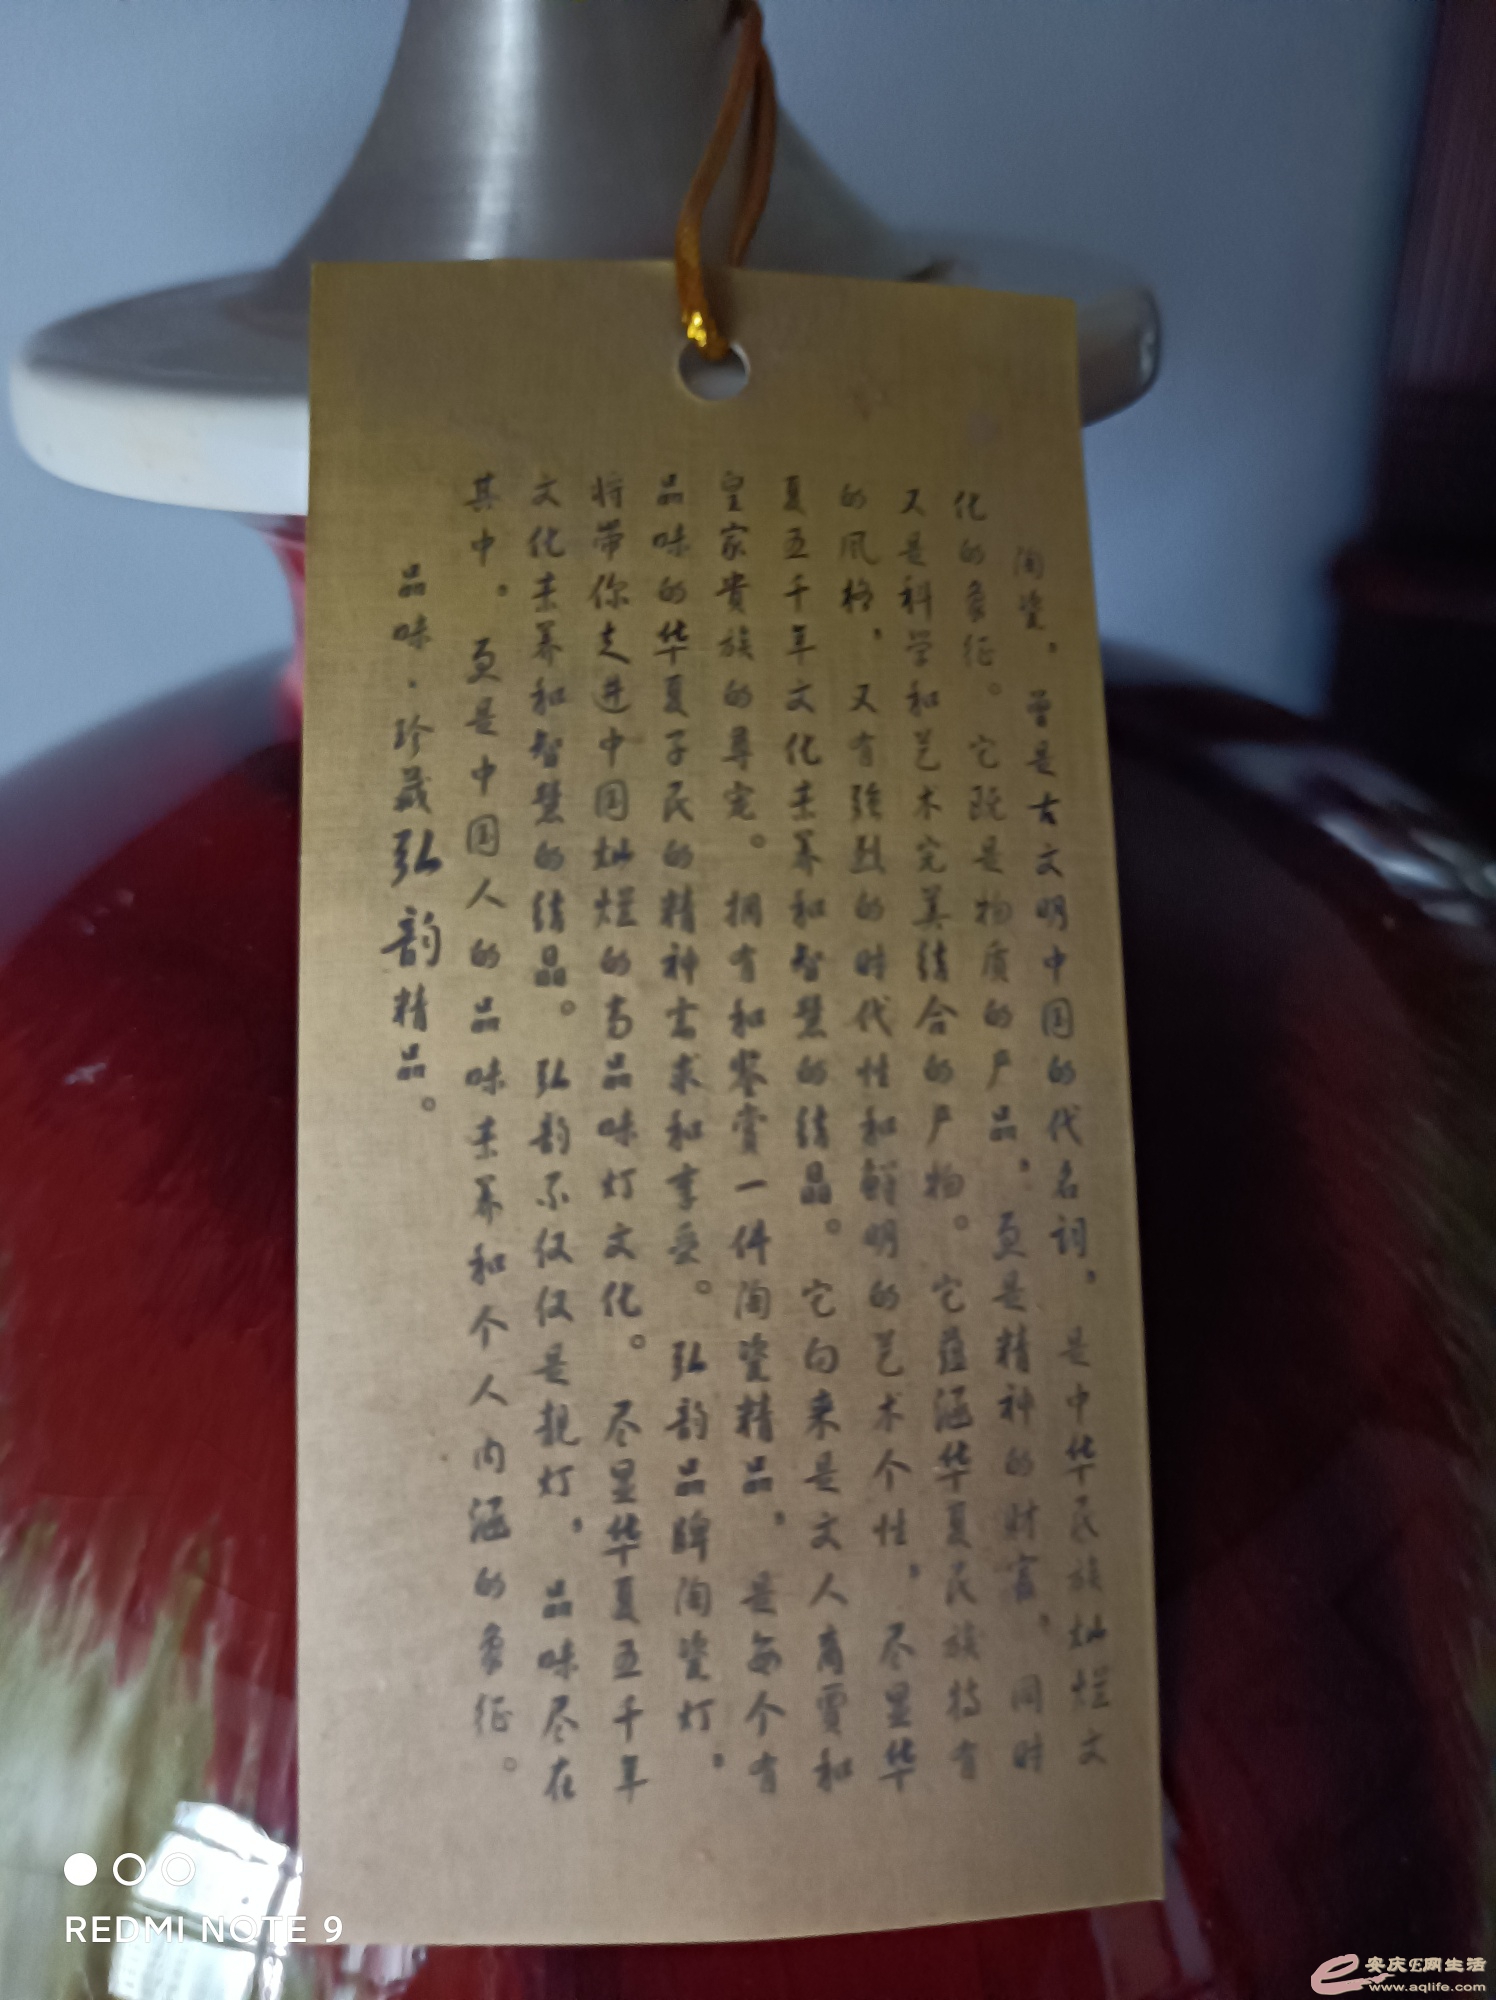 陶瓷，曾是古文明中国的代名词，是中华民族灿烂文
化的象征。它既是物质的产品，更是精神的财富，同时
又是科学和艺术完美结合的产物。它蕴涵华夏民族特有
的风格，又有强烈的时代性和鲜明的艺术个性，尽显华
夏五千年文化素养和智慧的结晶。它向来是文人商贾和
皇家贵族的尊宠。拥有和鉴赏一件陶瓷精品，是每个有
品味的华夏子民的精神需求和享受。弘韵品牌陶瓷灯，
将带你走进中国灿烂的高品味灯文化。尽显华夏五千年
文化素养和智慧的结晶。弘韵不仅仅是靓灯，品味尽在
其中。更是中国人的品味素养和个人内涵的象征。
品味·珍藏弘韵精品。
REDMI NOTE 9
安庆E网生活
www.aqlife.com